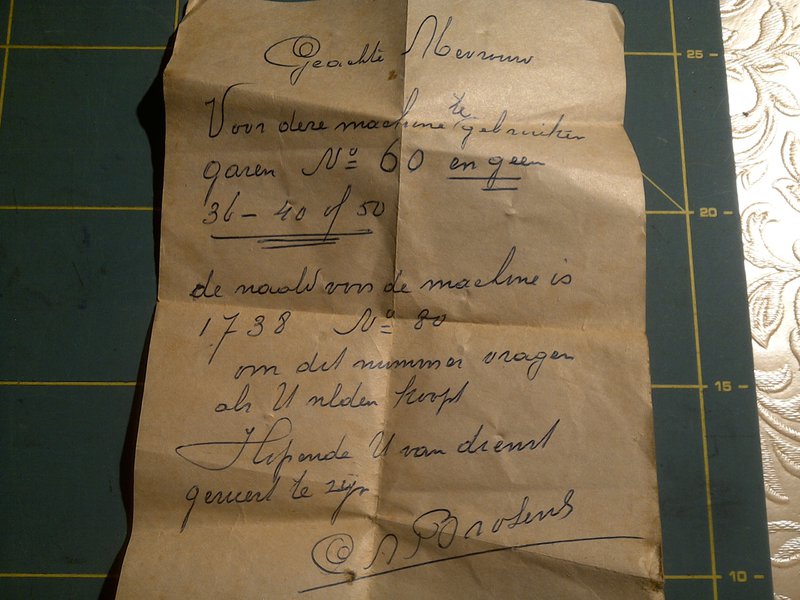 Geachte Mevrouw
Voor deze machine te gebruiken
garen Nº 60 en geen
36 - 40 of 50
de naald van de machine is
1738 Nº 80
om dit nummer vragen
als U nlden koopt
Hopende U van dienst
geweest te zijn
Brosens
25
20
15
10